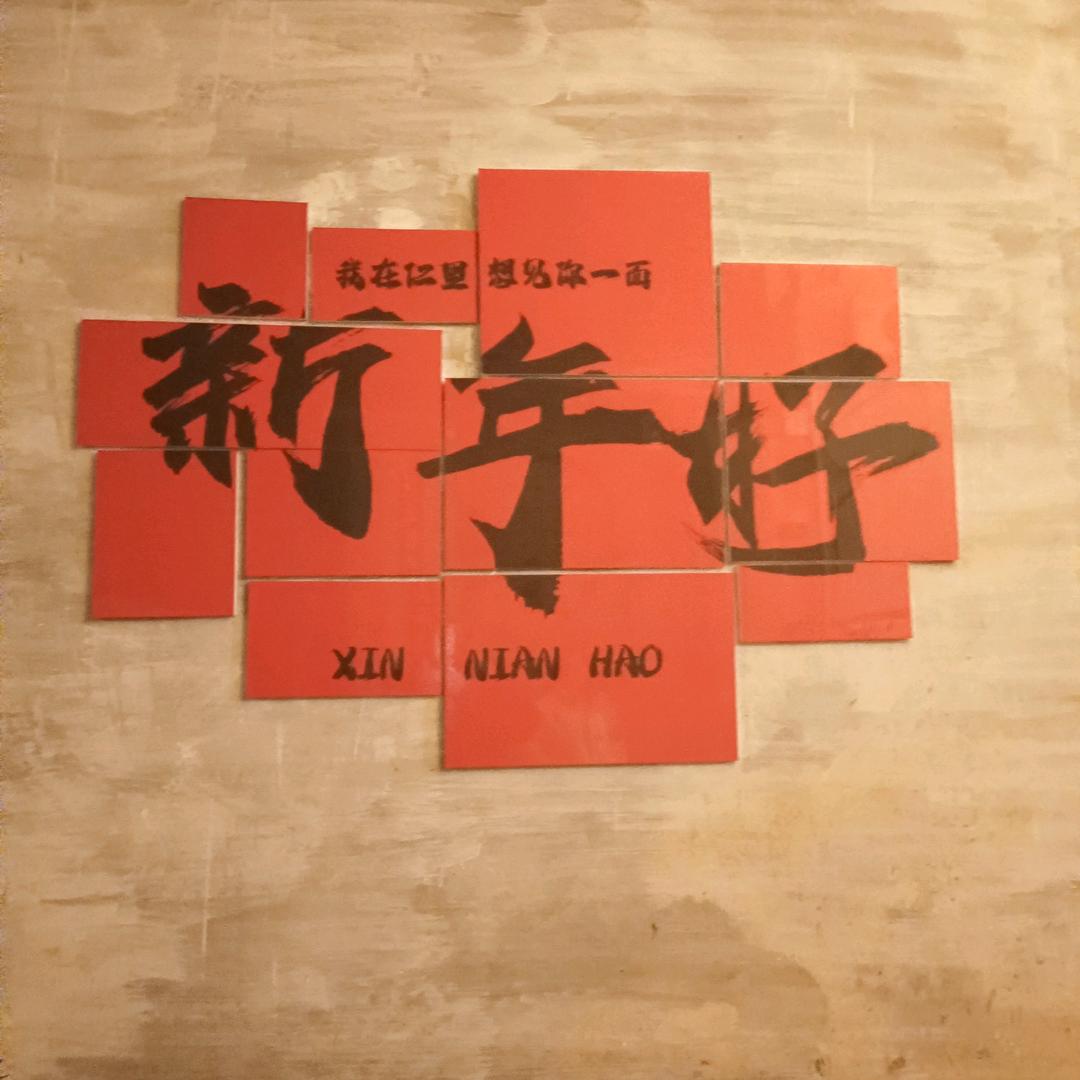 我在仁里 想见你一面
新年好
XIN NIAN HAO